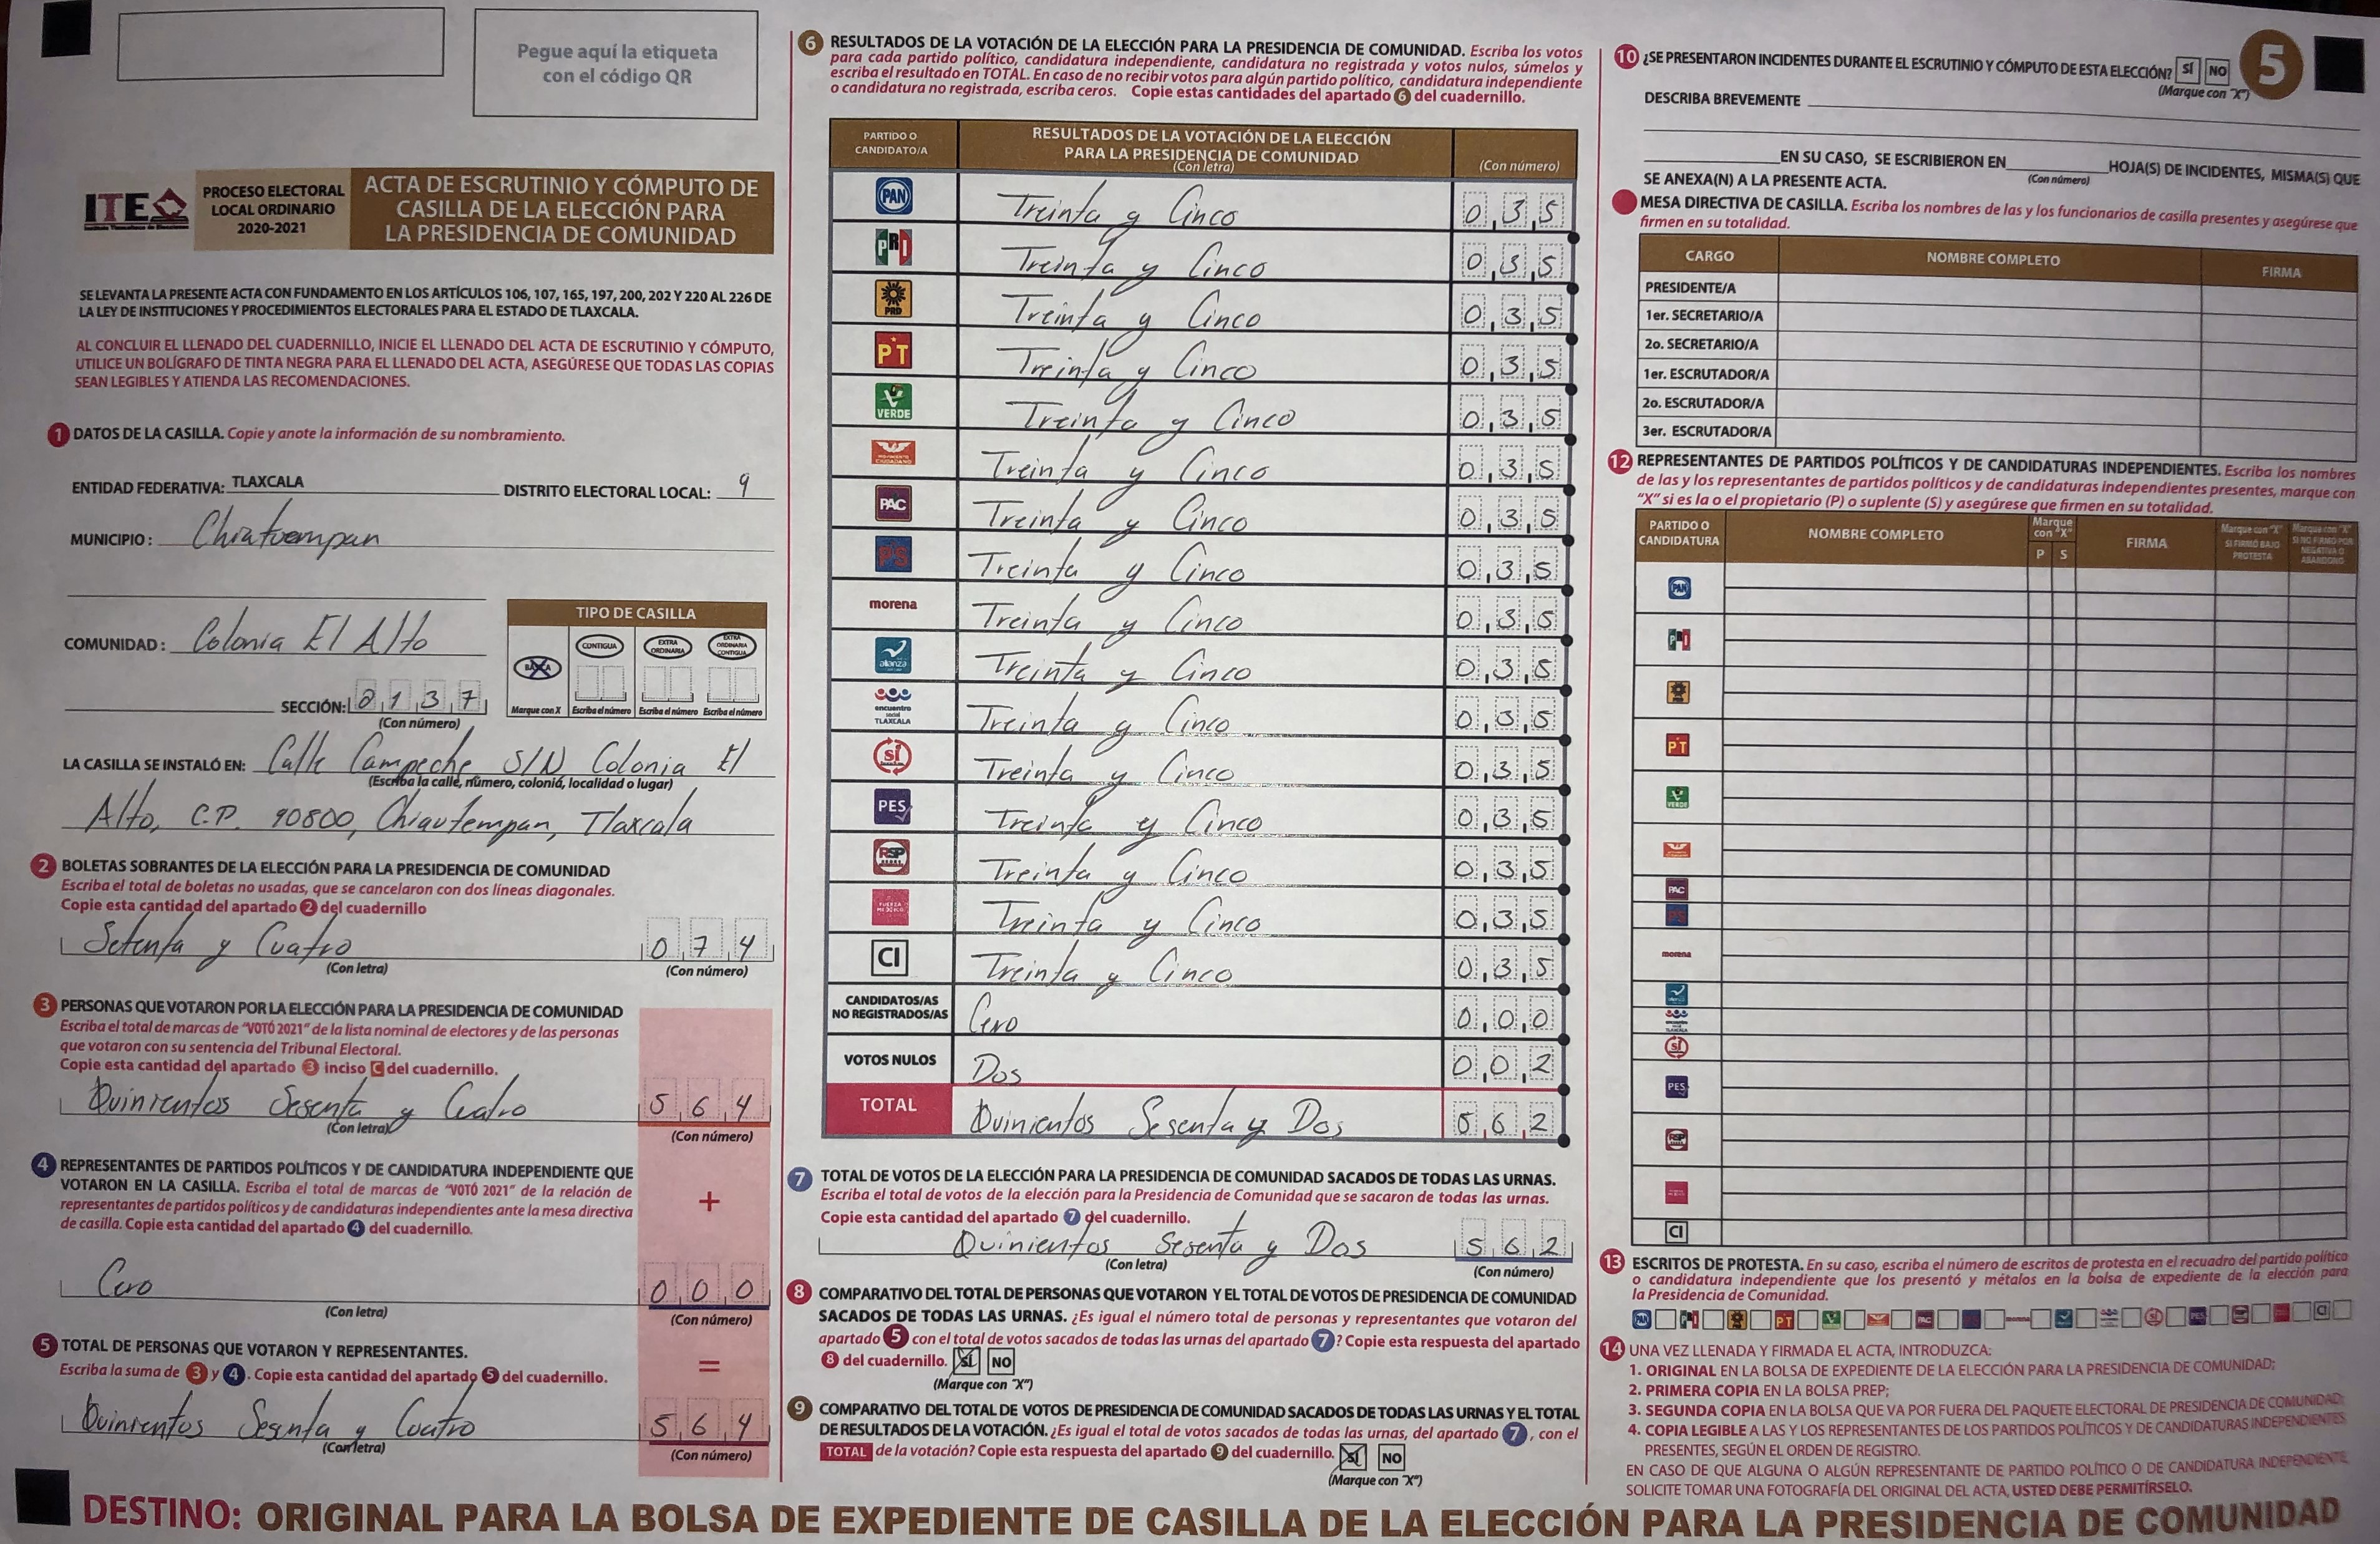 Pegue aquí la etiqueta
con el código QR
ITE
PROCESO ELECTORAL
LOCAL ORDINARIO
2020-2021
ACTA DE ESCRUTINIO Y CÓMPUTO DE
CASILLA DE LA ELECCIÓN PARA
LA PRESIDENCIA DE COMUNIDAD
SE LEVANTA LA PRESENTE ACTA CON FUNDAMENTO EN LOS ARTÍCULOS 106, 107, 165, 197, 200, 202 Y 220 AL 226 DE
LA LEY DE INSTITUCIONES Y PROCEDIMIENTOS ELECTORALES PARA EL ESTADO DE TLAXCALA.
AL CONCLUIR EL LLENADO DEL CUADERNILLO, INICIE EL LLENADO DEL ACTA DE ESCRUTINIO Y CÓMPUTO,
UTILICE UN BOLÍGRAFO DE TINTA NEGRA PARA EL LLENADO DEL ACTA, ASEGÚRESE QUE TODAS LAS COPIAS
SEAN LEGIBLES Y ATIENDA LAS RECOMENDACIONES.
1 DATOS DE LA CASILLA. Copie y anote la información de su nombramiento.
ENTIDAD FEDERATIVA: TLAXCALA DISTRITO ELECTORAL LOCAL: 9
MUNICIPIO: Chiatuempan
COMUNIDAD: Colonia El Alto
TIPO DE CASILLA
BÁSICA CONTIGUA EXTRA ORDINARIA EXTRA ORDINARIA CONTIGUA
Marque con X Escriba el número Escriba el número Escriba el número
SECCIÓN: 0137
(Con número)
LA CASILLA SE INSTALÓ EN: Calle Campeche S/N Colonia El
(Escriba la calle, número, colonia, localidad o lugar)
Alto, C.P. 90800, Chiautempan, Tlaxcala
2 BOLETAS SOBRANTES DE LA ELECCIÓN PARA LA PRESIDENCIA DE COMUNIDAD
Escriba el total de boletas no usadas, que se cancelaron con dos líneas diagonales.
Copie esta cantidad del apartado 2 del cuadernillo
Setenta y Cuatro 074
(Con letra) (Con número)
3 PERSONAS QUE VOTARON POR LA ELECCIÓN PARA LA PRESIDENCIA DE COMUNIDAD
Escriba el total de marcas de "VOTÓ 2021" de la lista nominal de electores y de las personas
que votaron con su sentencia del Tribunal Electoral.
Copie esta cantidad del apartado 3 inciso C del cuadernillo.
Quinientos Sesenta y Cuatro 564
(Con letra) (Con número)
4 REPRESENTANTES DE PARTIDOS POLÍTICOS Y DE CANDIDATURA INDEPENDIENTE QUE
VOTARON EN LA CASILLA. Escriba el total de marcas de "VOTÓ 2021" de la relación de
representantes de partidos políticos y de candidaturas independientes ante la mesa directiva
de casilla. Copie esta cantidad del apartado 4 del cuadernillo.
+
Cero 000
(Con letra) (Con número)
5 TOTAL DE PERSONAS QUE VOTARON Y REPRESENTANTES.
Escriba la suma de 3 y 4. Copie esta cantidad del apartado 5 del cuadernillo.
=
Quinientos Sesenta y Cuatro 564
(Con letra) (Con número)
6 RESULTADOS DE LA VOTACIÓN DE LA ELECCIÓN PARA LA PRESIDENCIA DE COMUNIDAD. Escriba los votos
para cada partido político, candidatura independiente, candidatura no registrada y votos nulos, súmelos y
escriba el resultado en TOTAL. En caso de no recibir votos para algún partido político, candidatura independiente
o candidatura no registrada, escriba ceros. Copie estas cantidades del apartado 6 del cuadernillo.
PARTIDO O CANDIDATO/A
RESULTADOS DE LA VOTACIÓN DE LA ELECCIÓN
PARA LA PRESIDENCIA DE COMUNIDAD
(Con letra) (Con número)
PAN Treinta y Cinco 035
PRI Treinta y Cinco 035
PRD Treinta y Cinco 035
PT Treinta y Cinco 035
VERDE Treinta y Cinco 035
MOVIMIENTO CIUDADANO Treinta y Cinco 035
PAC Treinta y Cinco 035
PS Treinta y Cinco 035
morena Treinta y Cinco 035
alianza Treinta y Cinco 035
encuentro social TLAXCALA Treinta y Cinco 035
SÍ Treinta y Cinco 035
PES Treinta y Cinco 035
RSP Treinta y Cinco 035
FUERZA MÉXICO Treinta y Cinco 035
CI Treinta y Cinco 035
CANDIDATOS/AS NO REGISTRADOS/AS Cero 000
VOTOS NULOS Dos 002
TOTAL Quinientos Sesenta y Dos 562
7 TOTAL DE VOTOS DE LA ELECCIÓN PARA LA PRESIDENCIA DE COMUNIDAD SACADOS DE TODAS LAS URNAS.
Escriba el total de votos de la elección para la Presidencia de Comunidad que se sacaron de todas las urnas.
Copie esta cantidad del apartado 7 del cuadernillo.
Quinientos Sesenta y Dos 562
(Con letra) (Con número)
8 COMPARATIVO DEL TOTAL DE PERSONAS QUE VOTARON Y EL TOTAL DE VOTOS DE PRESIDENCIA DE COMUNIDAD
SACADOS DE TODAS LAS URNAS. ¿Es igual el número total de personas y representantes que votaron del
apartado 5 con el total de votos sacados de todas las urnas del apartado 7? Copie esta respuesta del apartado
8 del cuadernillo. SÍ NO
(Marque con "X")
9 COMPARATIVO DEL TOTAL DE VOTOS DE PRESIDENCIA DE COMUNIDAD SACADOS DE TODAS LAS URNAS Y EL TOTAL
DE RESULTADOS DE LA VOTACIÓN. ¿Es igual el total de votos sacados de todas las urnas, del apartado 7, con el
TOTAL de la votación? Copie esta respuesta del apartado 9 del cuadernillo. SÍ NO
(Marque con "X")
10 ¿SE PRESENTARON INCIDENTES DURANTE EL ESCRUTINIO Y CÓMPUTO DE ESTA ELECCIÓN? SÍ NO
5
(Marque con "X")
DESCRIBA BREVEMENTE
EN SU CASO, SE ESCRIBIERON EN HOJA(S) DE INCIDENTES, MISMA(S) QUE
(Con número)
SE ANEXA(N) A LA PRESENTE ACTA.
MESA DIRECTIVA DE CASILLA. Escriba los nombres de las y los funcionarios de casilla presentes y asegúrese que
firmen en su totalidad.
CARGO NOMBRE COMPLETO FIRMA
PRESIDENTE/A
1er. SECRETARIO/A
2o. SECRETARIO/A
1er. ESCRUTADOR/A
2o. ESCRUTADOR/A
3er. ESCRUTADOR/A
12 REPRESENTANTES DE PARTIDOS POLÍTICOS Y DE CANDIDATURAS INDEPENDIENTES. Escriba los nombres
de las y los representantes de partidos políticos y de candidaturas independientes presentes, marque con
"X" si es la o el propietario (P) o suplente (S) y asegúrese que firmen en su totalidad.
PARTIDO O CANDIDATURA NOMBRE COMPLETO Marque con "X" P S FIRMA Marque con "X" SI FIRMÓ BAJO PROTESTA Marque con "X" SI NO FIRMÓ POR NEGATIVA O ABANDONO
PAN
PRI
PRD
PT
VERDE
PAC
PS
morena
alianza
encuentro social TLAXCALA
SÍ
PES
RSP
CI
13 ESCRITOS DE PROTESTA. En su caso, escriba el número de escritos de protesta en el recuadro del partido político
o candidatura independiente que los presentó y métalos en la bolsa de expediente de la elección para
la Presidencia de Comunidad.
PAN PRI PRD PT VERDE PAC PS morena SÍ PES RSP CI
14 UNA VEZ LLENADA Y FIRMADA EL ACTA, INTRODUZCA:
1. ORIGINAL EN LA BOLSA DE EXPEDIENTE DE LA ELECCIÓN PARA LA PRESIDENCIA DE COMUNIDAD;
2. PRIMERA COPIA EN LA BOLSA PREP;
3. SEGUNDA COPIA EN LA BOLSA QUE VA POR FUERA DEL PAQUETE ELECTORAL DE PRESIDENCIA DE COMUNIDAD;
4. COPIA LEGIBLE A LAS Y LOS REPRESENTANTES DE LOS PARTIDOS POLÍTICOS Y DE CANDIDATURAS INDEPENDIENTES
PRESENTES, SEGÚN EL ORDEN DE REGISTRO.
EN CASO DE QUE ALGUNA O ALGÚN REPRESENTANTE DE PARTIDO POLÍTICO O DE CANDIDATURA INDEPENDIENTE
SOLICITE TOMAR UNA FOTOGRAFÍA DEL ORIGINAL DEL ACTA, USTED DEBE PERMITÍRSELO.
DESTINO: ORIGINAL PARA LA BOLSA DE EXPEDIENTE DE CASILLA DE LA ELECCIÓN PARA LA PRESIDENCIA DE COMUNIDAD